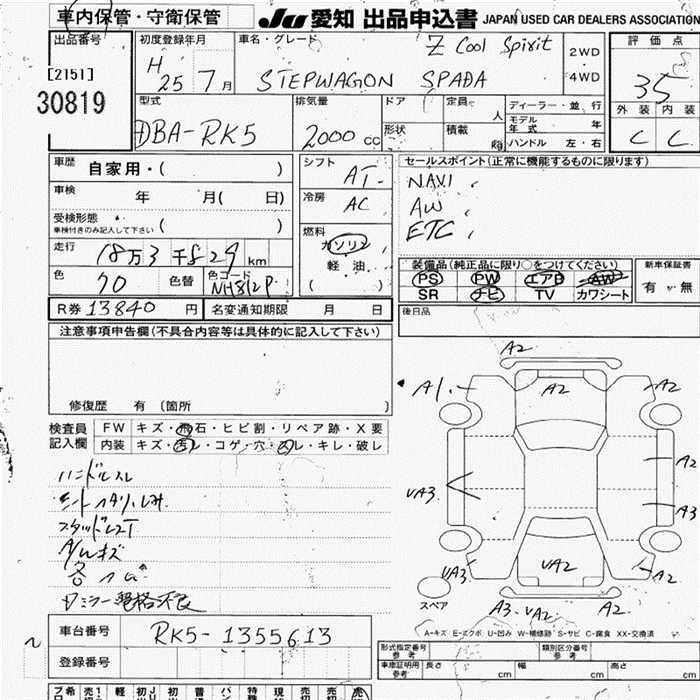 車内保管・守衛保管 JU 愛知 出品申込書 JAPAN USED CAR DEALERS ASSOCIATION
出品番号
[2151]
30819
初度登録年月
H 25 7 月
車名・グレード
Z Cool Spirit
STEPWAGON SPADA
2WD
4WD
評価点
3.5
外装 内装
C C
型式
DBA-RK5
排気量
2000 cc
ドア
形状
定員 人
積載 kg
ディーラー・並 行
モデル年式 年
ハンドル 左・右
車歴 自家用・( )
車検 年 月( 日)
受検形態
車検付きのみ記入して下さい ( )
走行 18万3千829 km
色 70 色替 色コード NH812P
シフト AT
冷房 AC
燃料
ガソリン
軽油
( )
セールスポイント(正常に機能するものに限ります)
NAVI
AW
ETC
装備品(純正品に限り○をつけてください)
PS PW エアB AW
SR ナビ TV カワシート
新車保証書
有・無
R券 13840 円 名変通知期限 月 日
後日品
注意事項申告欄(不具合内容等は具体的に記入して下さい)
修復歴 有 (箇所 )
検査員記入欄
FW キズ・飛石・ヒビ割・リペア跡・X要
内装 キズ・汚レ・コゲ・穴・スレ・キレ・破レ
ハンドルスレ
A/Wキズ
A2
A1 A2 A2
A2
VA3 A3
VA3 VA2 A2
A3. VA2 A2
スペア
A-キズ E-エクボ U-凹み W-補修跡 S-サビ C-腐食 XX-交換済
車台番号 RK5-1355613
登録番号
形式指定番号 参考 類別区分番号 参考
車庫証明用 参考 長さ cm 幅 cm 高さ cm